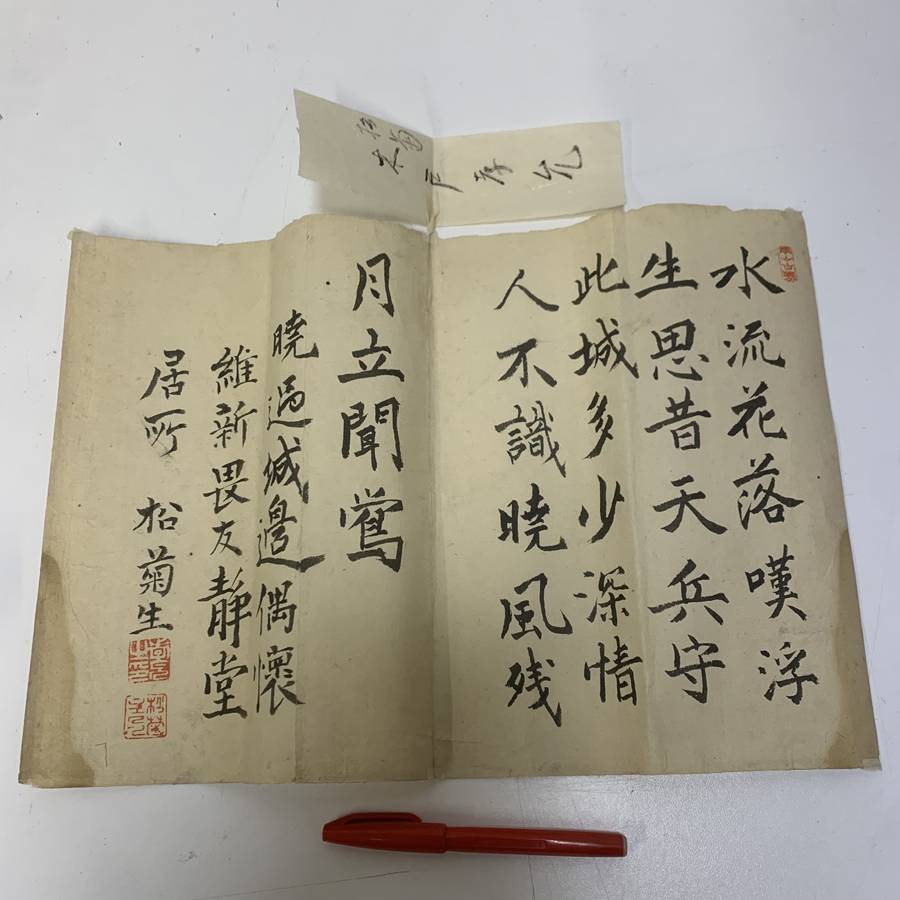 松菊
木戸孝允
水流花落嘆浮
生思昔天兵守
此城多少深情
人不識曉風残
月立聞鶯
曉過城邊偶懷
維新畏友静堂
居所 松菊生